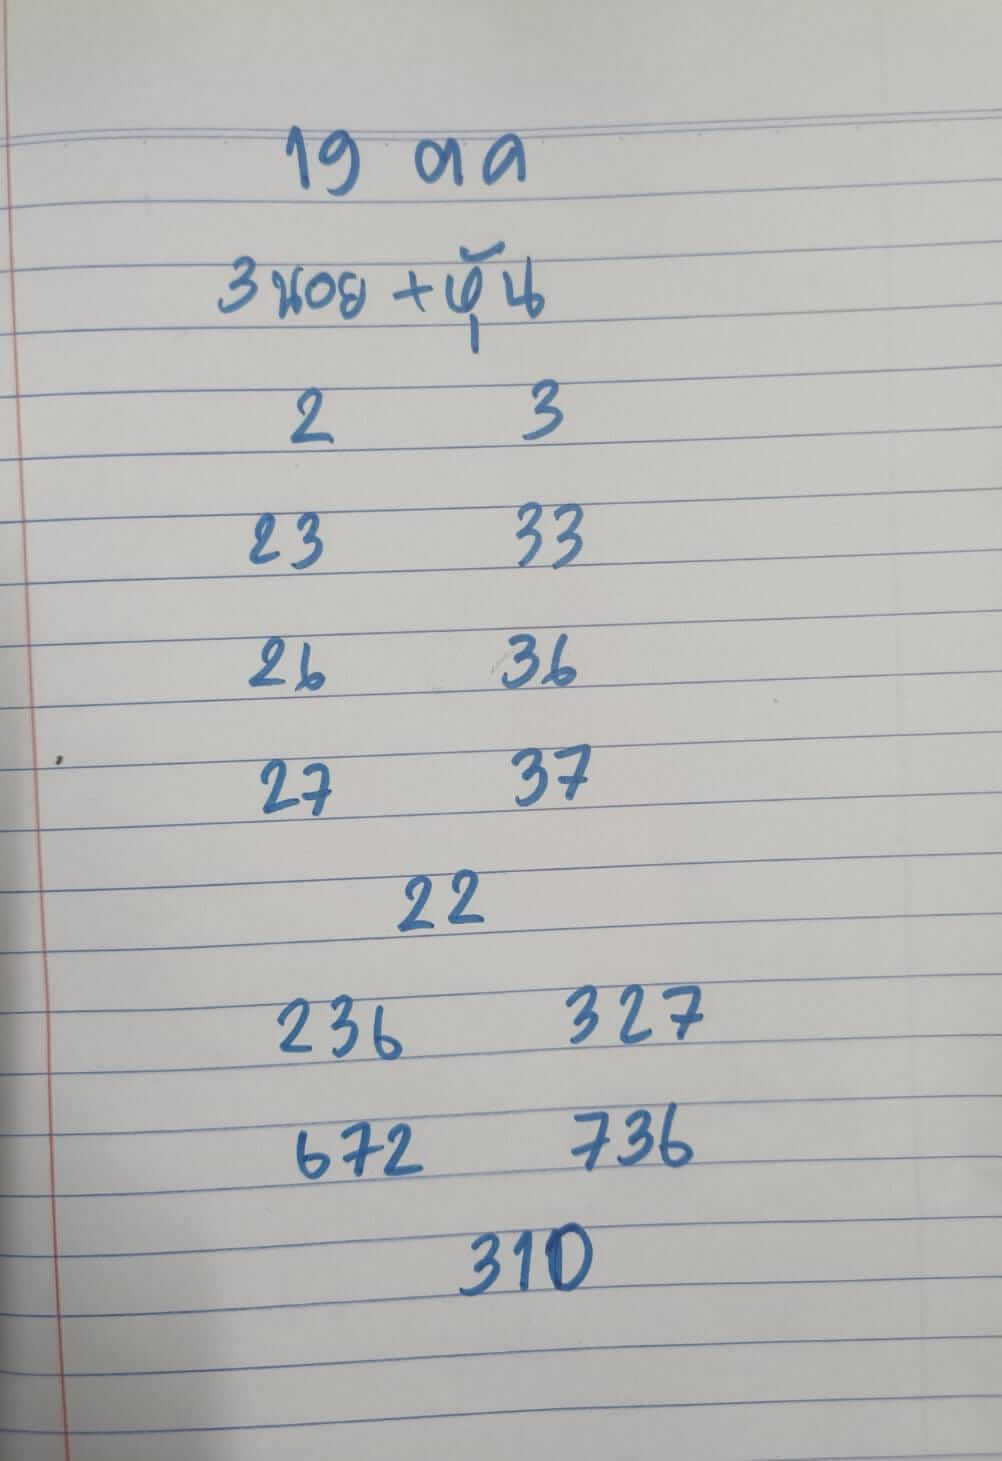 19 ตค
3 นอย + หุ้น
2 3
23 33
26 36
27 37
22
236 327
672 736
310